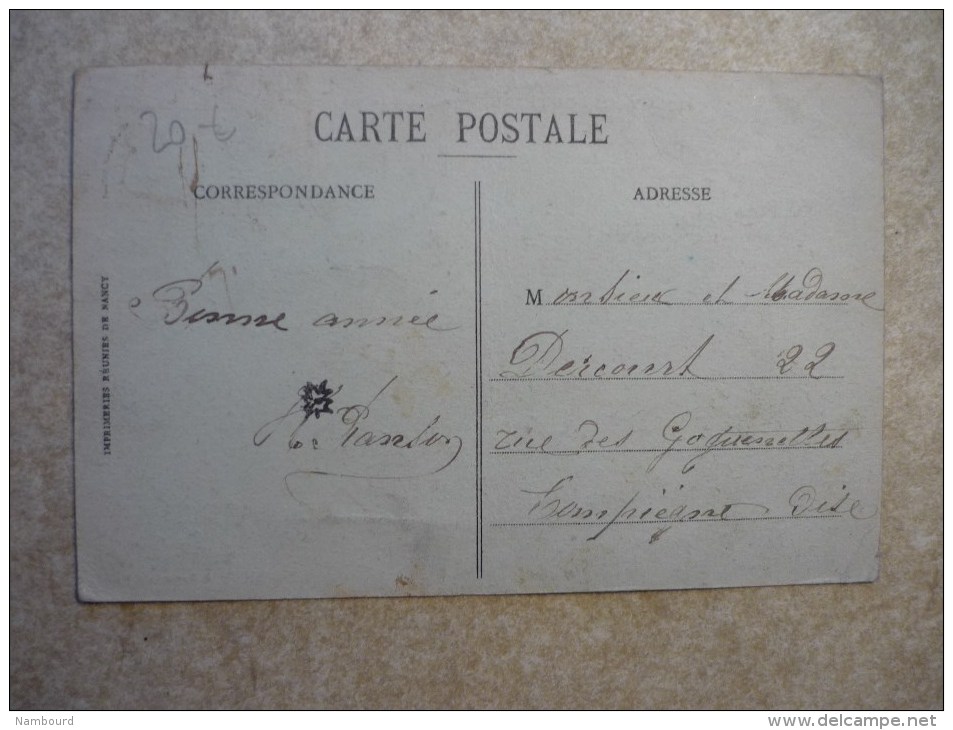 20 €
CARTE POSTALE
CORRESPONDANCE
ADRESSE
IMPRIMERIES RÉUNIES DE NANCY
Bonne année
Monsieur et Madame
Dercourt 22
rue des
Compiègne Oise
Nambourd
www.delcampe.net